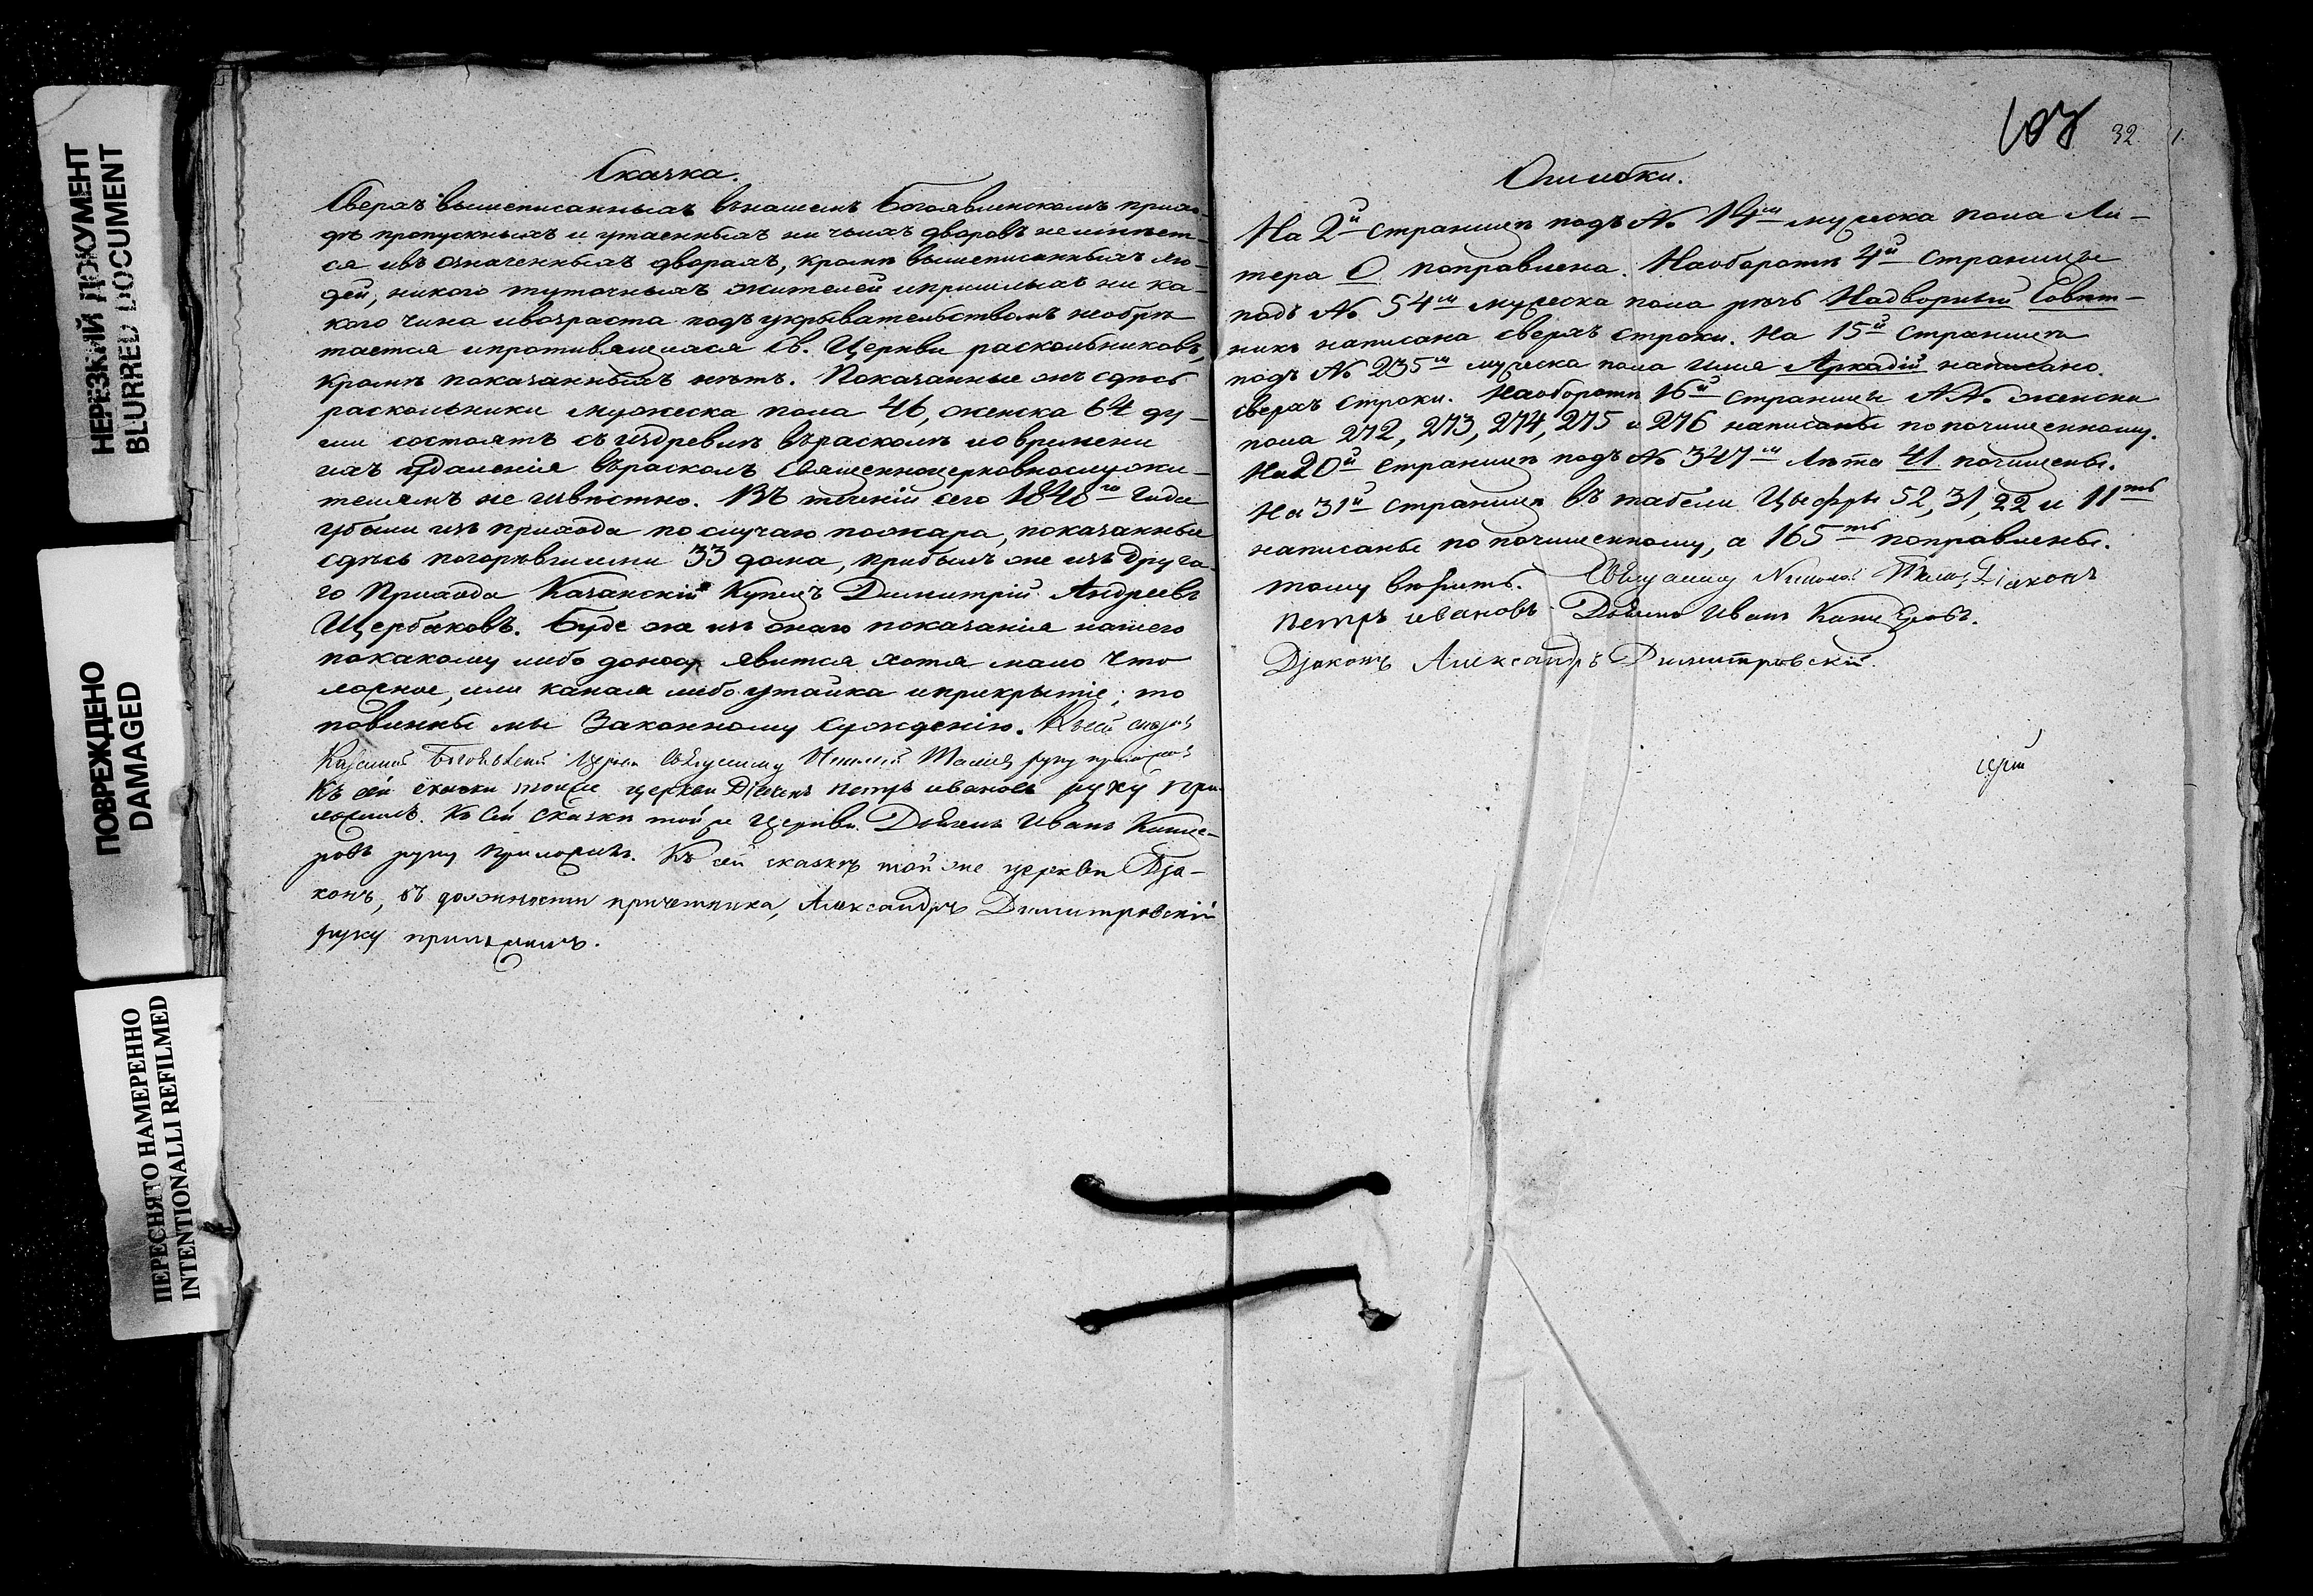 НЕРЕЗКИЙ ДОКУМЕНТ
BLURRED DOCUMENT
ПОВРЕЖДЕНО
DAMAGED
ПЕРЕСНЯТО НАМЕРЕННО
INTENTIONALLI REFILMED
Сказка.
Сверхъ вышеписанныхъ въ нашемъ Богоявленскомъ прихо-
дѣ пропускныхъ и утаенныхъ ни чьихъ дворовъ не имѣет-
ся и въ означенныхъ дворахъ, кромѣ вышеписанныхъ лю-
дей, никого туточныхъ жителей и пришлыхъ ни ка-
кого чина и возраста подъ укрывательствомъ необрѣ-
тается и противящихся Св. Церкви раскольниковъ,
кромѣ показанныхъ нѣтъ. Показанные же здѣсь
раскольники мужеска пола 46, женска 64 ду-
ши состоятъ съ издревле въ расколѣ и о времени
ихъ удаленія въ расколъ Священноцерковнослужи-
телямъ не извѣстно. Въ теченіи сего 1848го года
убыли изъ прихода по случаю пожара, показанные
здѣсь погорѣвшими 33 дома, прибылъ же изъ друга-
го Прихода Казанскій Купецъ Димитрій Андреевъ
Щербаковъ. Буде же изъ онаго показанія нашего
по какому либо доносу явится хотя мало что
ложное, или какая либо утайка и прикрытіе; то
повинны мы Законному сужденію. Къ сей сказкѣ
Казанской Богоявленской Церкви Священникъ руку приложилъ
Къ сей сказки тойже церкви Діаконъ Петръ Ивановъ руку при-
ложилъ. Къ сей сказки той же Церкви Дьячекъ Иванъ
руку приложилъ. Къ сей сказкѣ той же церкви Діа-
конъ, въ должности причетника, Александръ Димитровскій
руку приложилъ.
107 32
Ошибки.
На 2й страницѣ подъ № 14мъ мужеска пола Ли-
тера О поправлена. На оборотѣ 4й страницы
подъ № 54мъ мужеска пола рѣчь Надворный Совѣт-
никъ написана сверхъ строки. На 15й страницѣ
подъ № 235мъ мужеска пола имя Аркадій написано
сверхъ строки. На оборотѣ 16й страницы №№ женска
пола 272, 273, 274, 275 и 276 написаны по почищенному.
На 20й страницѣ подъ № 347мъ лѣта 41 почищены.
На 31й страницѣ въ табели Цыфры 52, 31, 22 и 11ть
написаны по почищенному, а 165ть поправлены.
тому вѣрить. Священникъ Діаконъ
Петръ Ивановъ Дьячекъ Иванъ
Діаконъ Александръ Димитровскій.